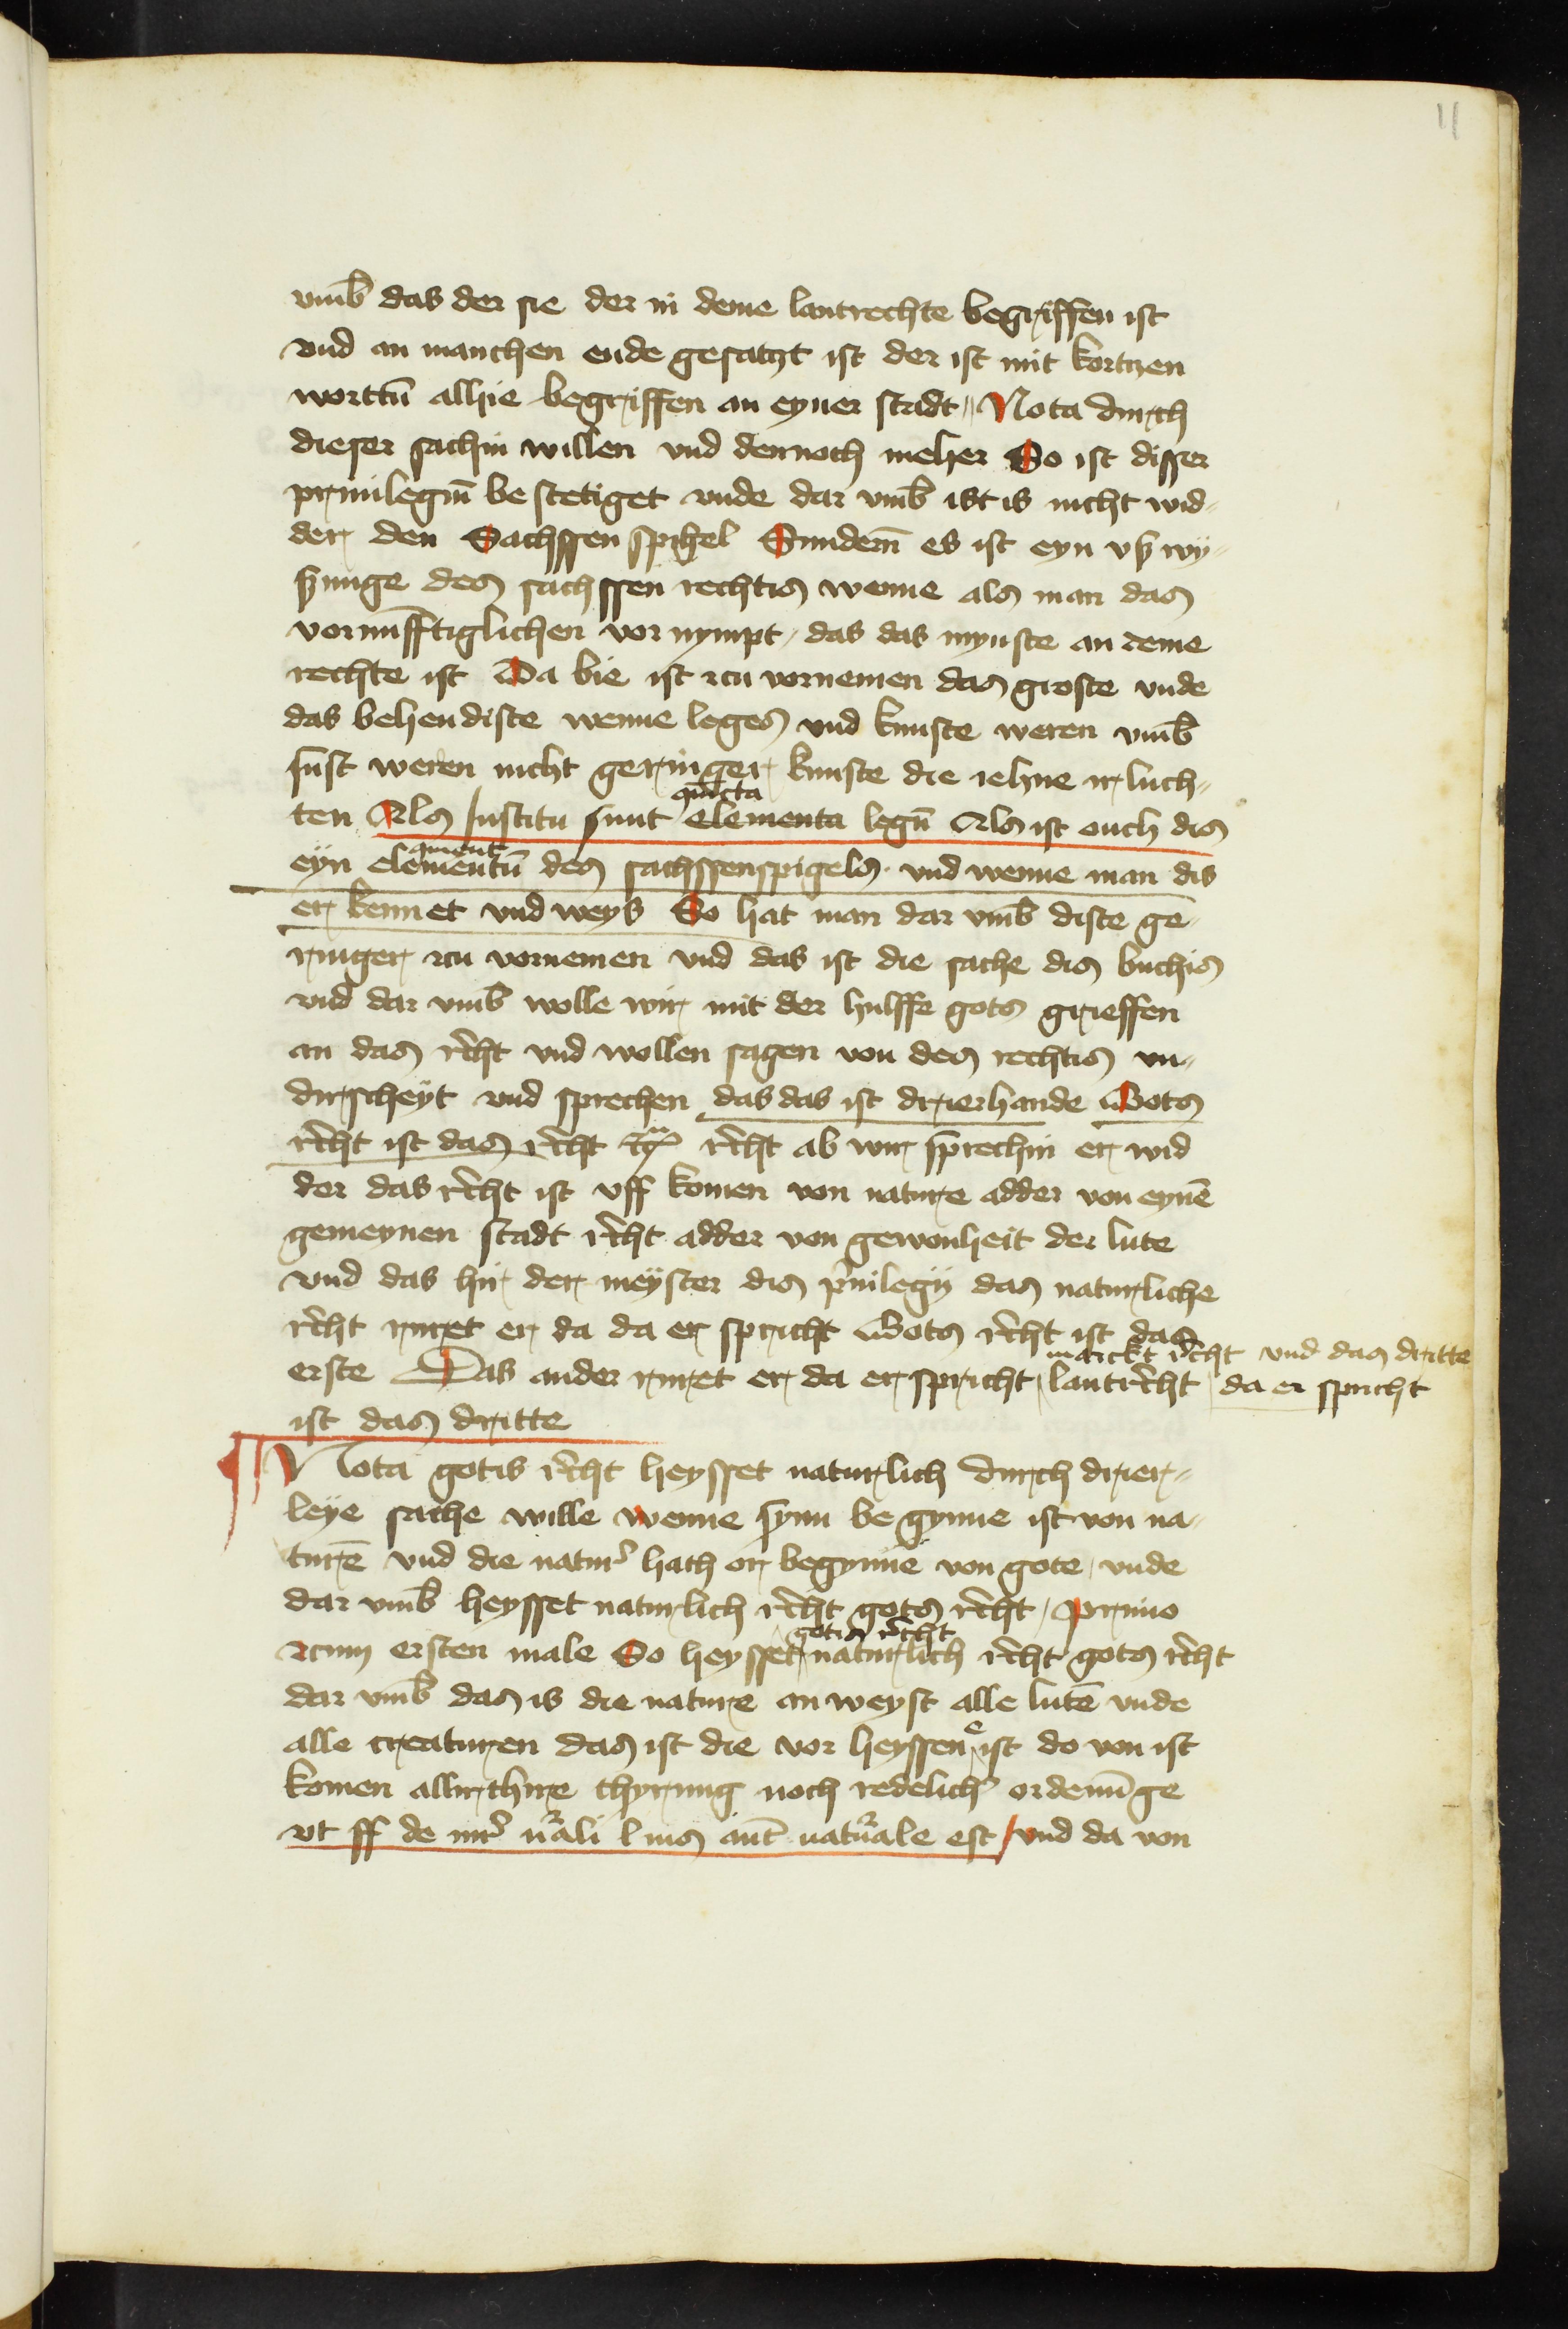 11
vmb̄ das der sie der in deme lantrechte begriffen ist
vnd an manchen ende gesatzt ist der ist mit kortzen
worttū alhie begriffen an eyner stadt Nota durch
dieser sachin willen vnd dennoch meher So ist disser
priuilegiū bestetiget vnde dar vmb̄ ist is nicht wid-
der den Sachssen spihel Sundern̄ es ist eyn vß wÿ-
ßunge des sachssen rechtis wenne als man das
vornūfftiglichen vor nympt das das mynste an deme
rechte ist Da bie ist zcu vornemen das groste vnde
das behendiste wenne leges vnd kunste weren vmb̄
sust weren nicht geringer kunste die iehne ir luch-
ten Als Institu sunt elementa legū Als ist ouch dis
eÿn elementū des sachssenspigels vnd wenne man dis
er kennet vnd weys So hat man dar vmb̄ diste ge-
ringer zcu vornemen vnd das ist die sache dis buchis
vnd dar vmb̄ wolle wir mit der hulffe gots grieffen
an das rc̄ht vnd wollen sagen von des rechtis vn-
dirscheÿt vnd sprechen das das ist drierhande Gots
rc̄ht ist das rc̄ht rc̄ht ab wir sprechin er wid
der das rc̄ht ist vff komen von nature adder von eynē
gemeynen stadt rc̄ht adder von gewonheit der lute
vnd das hir der meÿster dis p̄uilegij das naturliche
rc̄ht ruret er da da er spricht Gots rc̄ht ist das
marckt rc̄ht vnd das dritte
erste Das ander ruret er da er spricht lantrc̄ht da er spricht
ist das dritte
Nota gotis rc̄ht heysset naturlich durch drier-
leÿe sache wille wenne synn be gynne ist von na-
turē vnd die natur hath or begynne von gote vnde
dar vmb̄ heysset naturlich rc̄ht gots rc̄ht primo
gotis rc̄ht
zcum ersten male So heysset naturlich rc̄ht gots rc̄ht
dar vmb̄ das is die nature an weyst alle lutē vnde
alle creaturen das ist die vor heyssen e ist do von ist
komen allir thire thyrung noch redelich ordenūge
vt ff de iur nr̄ali l ius aut̄ natur̄ale est vnd da von